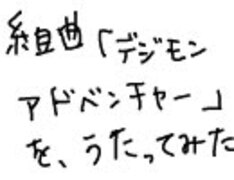 組曲「デジモン
アドベンチャー」
を、うたってみた